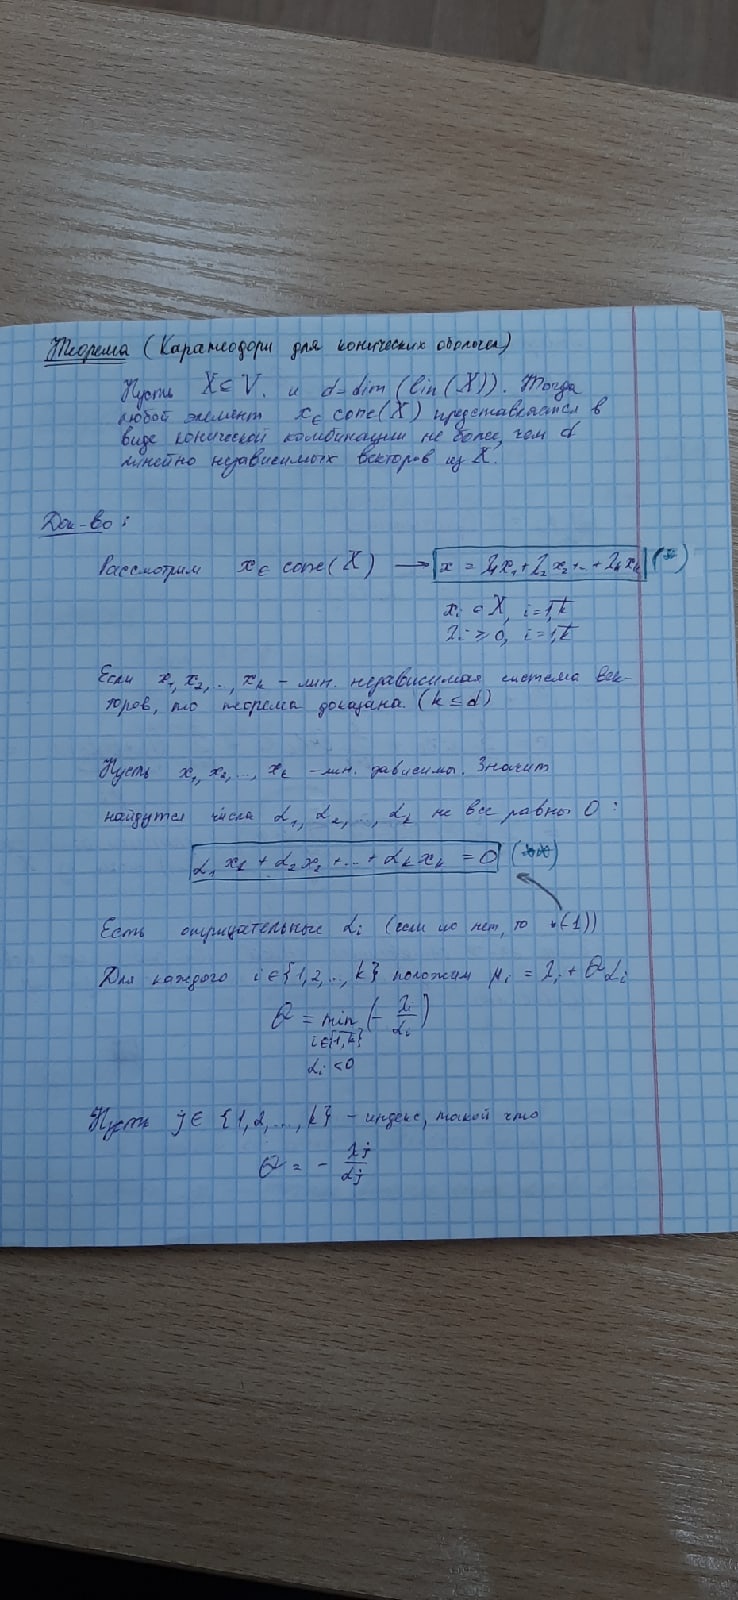 Теорема (Каратеодори для конических оболочек)
Пусть X ⊂ V. и d = dim (lin (X)). Тогда
любой элемент x ∈ cone(X) представляется в
виде конической комбинации не более, чем d
линейно независимых векторов из X.
Док-во:
Рассмотрим x ∈ cone(X) → x = λ₁x₁ + λ₂x₂ + .. + λₖxₖ (*)
xᵢ ∈ X, i = 1,k
λᵢ ≥ 0, i = 1,k
Если x₁, x₂, .., xₖ – лин. независимая система век-
торов, то теорема доказана. (k ≤ d)
Пусть x₁, x₂, ..., xₖ – лин. зависимы. Значит
найдутся числа α₁, α₂, ..., αₖ не все равны 0:
α₁x₁ + α₂x₂ + ... + αₖxₖ = 0 (**)
Есть отрицательные αᵢ (если их нет, то ·(-1))
Для каждого i ∈ {1, 2, .., k} положим μᵢ = λᵢ + θαᵢ
θ = min (- λᵢ/αᵢ)
i ∈ {1, k}
αᵢ < 0
Пусть j ∈ {1, 2, ..., k} – индекс, такой что
θ = - λⱼ/αⱼ